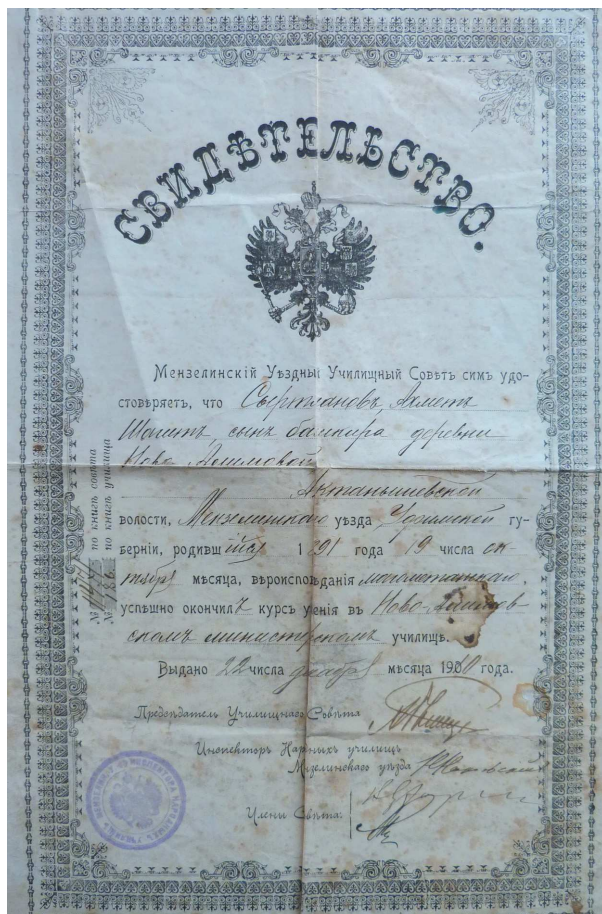 СВИДѢТЕЛЬСТВО.
Мензелинскій Уѣздный Училищный Совѣтъ симъ удо-
стовѣряетъ, что Ахметъ
сынъ башкира деревни
Ново Алимовой
Актанышевской
волости, Мензелинскаго уѣзда Уфимской гу-
берніи, родившійся 1891 года 19 числа ок-
тября мѣсяца, вѣроисповѣданія магометанскаго,
успѣшно окончилъ курсъ ученія въ Ново-Алимов-
скомъ министерскомъ училищѣ.
Выдано 22 числа декабря мѣсяца 1900 года.
Предсѣдатель Училищнаго Совѣта
Инспекторъ Народныхъ училищъ
Мензелинскаго уѣзда
Члены Совѣта:
№ по книгѣ совѣта
№ по книгѣ училища